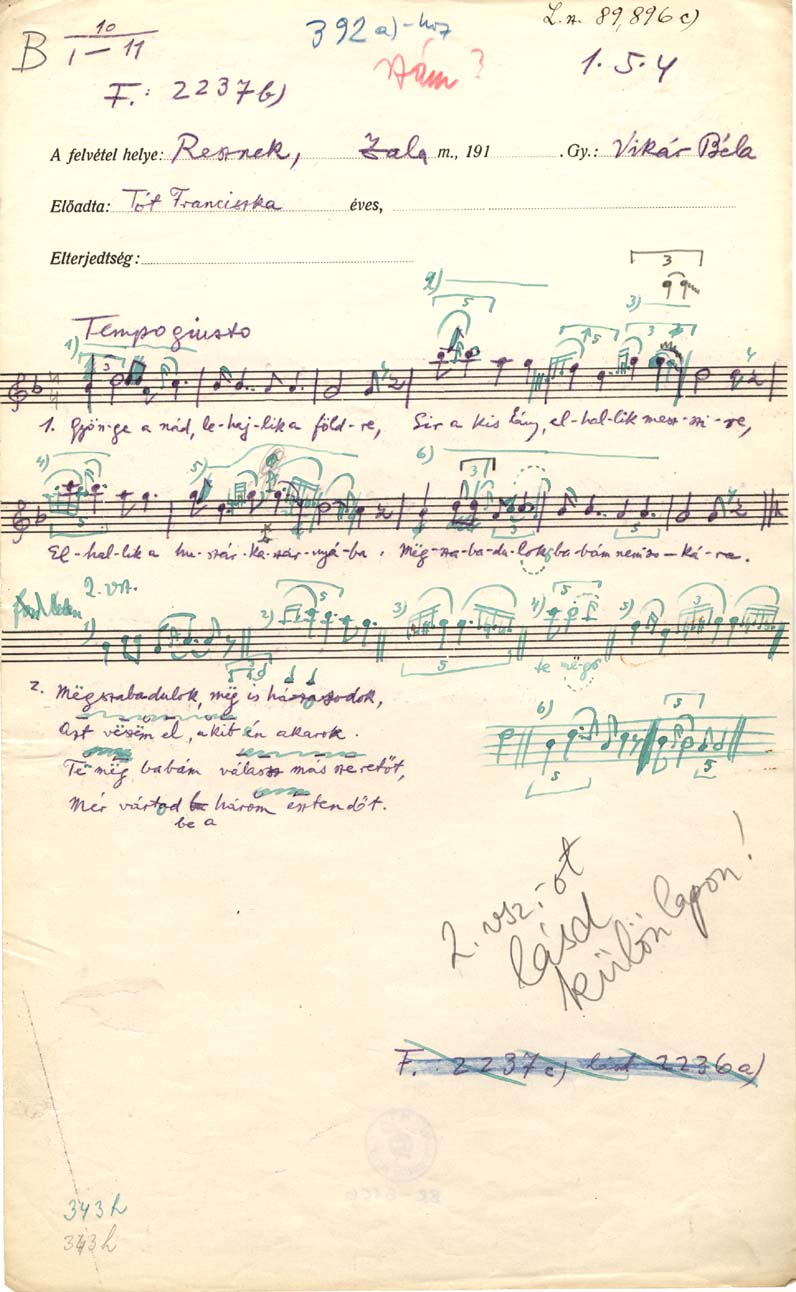 L. sz. 89,896 c)
392 a) - hoz
B 10
I – 11
Szám?
1. 5. 4
F.: 2237 b)
A felvétel helye: Resznek, Zala m., 191 . Gy.: Vikár Béla
Előadta: Tót Franciska éves,
Elterjedtség:
3
2)
3)
Tempo giusto
1) 3 5 5 3 4
1. Gyön-ge a nád, le-haj-lik a föld-re, Sir a kis lány, el-hal-lik mesz-szi-re,
4) 5) 6) 3
5 5 5
El-hal-lik a hu-szár-ka-szár-nyá-ba. Mëg-sza-ba-du-lok, ba-bám nem so-ká-ra.
2. vsz.
1) 2) 5 3) 4) 5 5) 3
5
te mëgs
2. Mëgszabadulok, még is házasodok,
Azt vëszëm el, akit én akarok.
Të mëg babám válassz más szeretőt,
Mér vártad három esztendőt.
be a
6) 5
5 5
2. vsz.-ot
lásd
külön lapon!
F. 2237 c) lásd 2236 a)
343 h
343 h